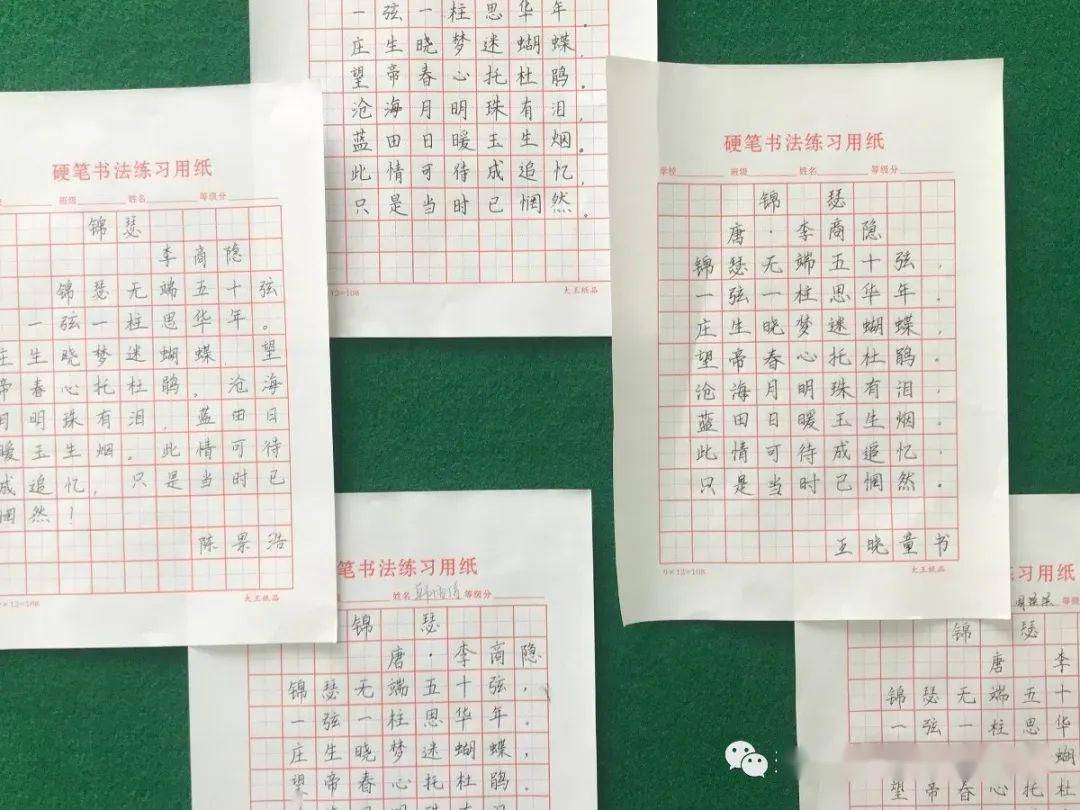 一弦一柱思华年。
庄生晓梦迷蝴蝶,
望帝春心托杜鹃。
沧海月明珠有泪,
蓝田日暖玉生烟。
此情可待成追忆,
只是当时已惘然。
12=108
大王纸品
硬笔书法练习用纸
班级 姓名 等级分
锦瑟
李商隐
锦瑟无端五十弦
一弦一柱思华年。
庄生晓梦迷蝴蝶 望
帝春心托杜鹃。沧海
月明珠有泪,蓝田日
暖玉生烟。此情可待
成追忆,只是当时已
惘然!
陈景浩
×12=108
大王纸品
硬笔书法练习用纸
学校 班级 姓名 等级分
锦瑟
唐·李商隐
锦瑟无端五十弦,
一弦一柱思华年.
庄生晓梦迷蝴蝶,
望帝春心托杜鹃.
沧海月明珠有泪.
蓝田日暖玉生烟.
此情可待成追忆.
只是当时已惘然.
王晓童书
9×12=108
大王纸品
笔书法练习用纸
姓名 等级分
锦瑟
唐·李商隐
锦瑟无端五十弦,
一弦一柱思华年.
庄生晓梦迷蝴蝶,
望帝春心托杜鹃.
沧海月明珠有泪
练习用纸
等级
锦瑟
唐 李
锦瑟无端五十
一弦一柱思华
蝴
望帝春心托杜